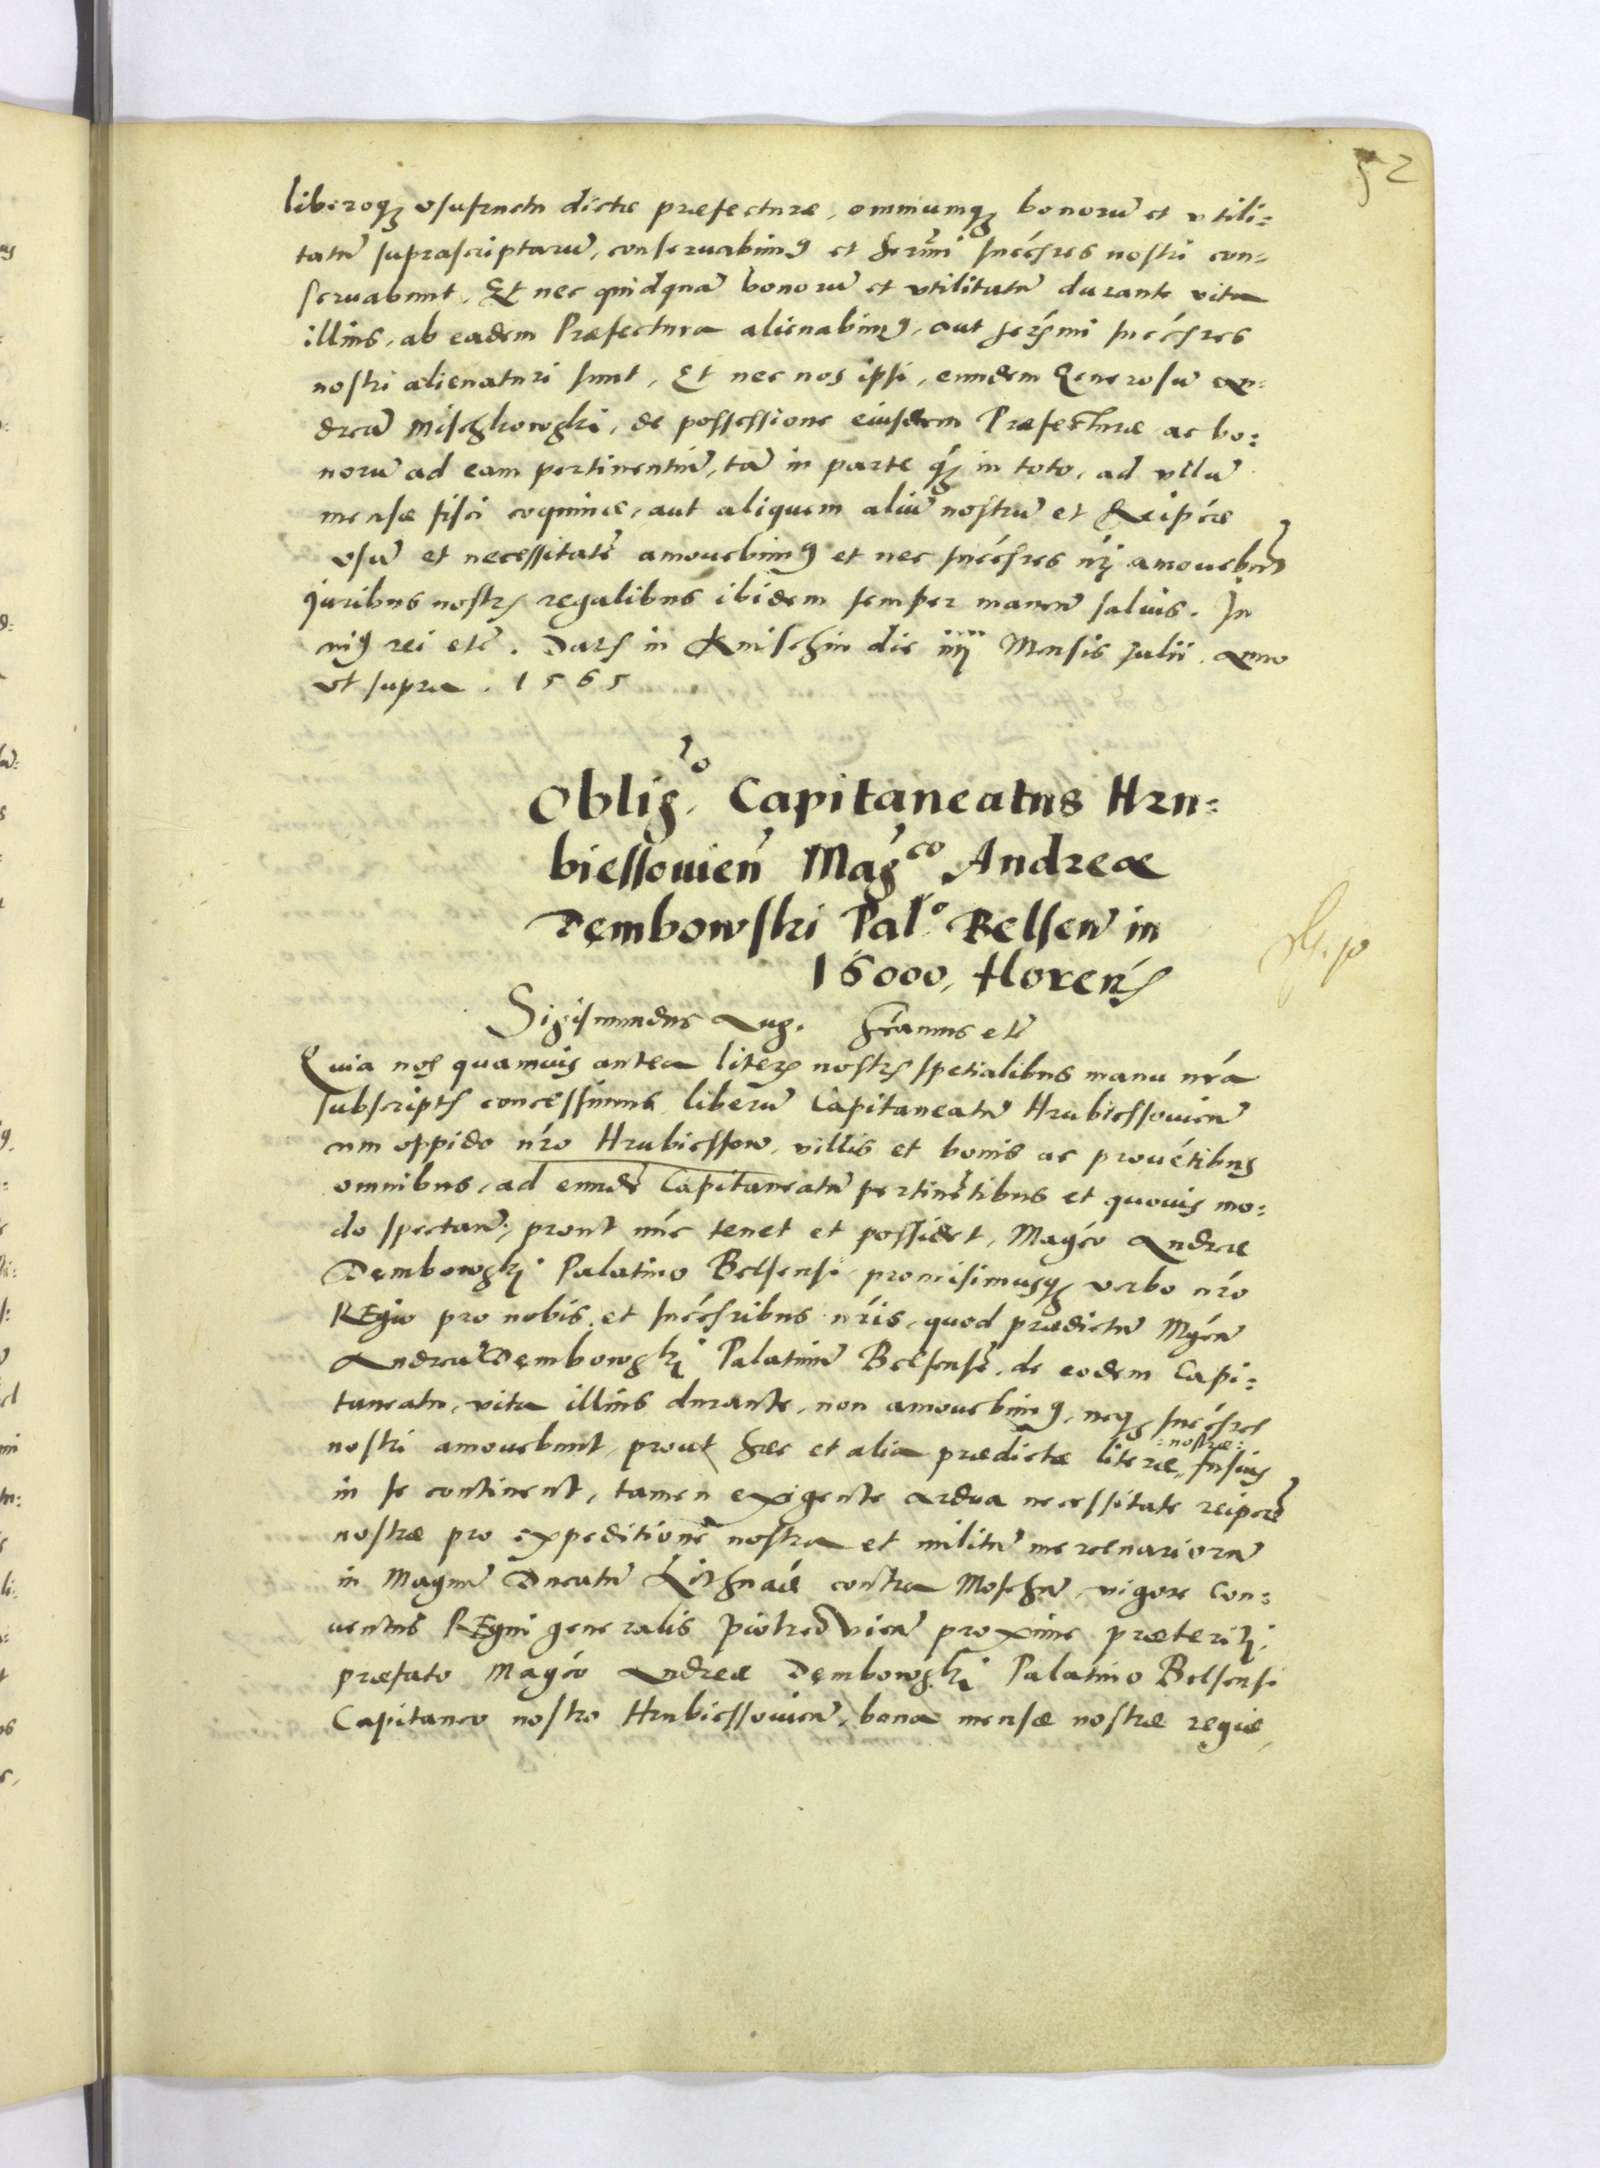 52
liberoqꝫ vsufructu dictæ præfecturæ, omniumqꝫ bonorū et vtili:
tatū suprascriptarū, conseruabimꝰ et serīmi succ̄sres nostri con:
seruabunt. Et nec quidquā bonorū et vtilitatū durante vita
illius, ab eadem Præfectura alienabimꝰ, aut serīsmi succ̄sres
nostri alienaturi sunt, Et nec nos ipsi, eundem Generosū An:
dreā Mischkowskj, de possessione eiusdem Præfecturæ ac bo:
norū ad eam pertinentiū, tā in parte q̄ꝫ in toto, ad vllū
mensæ fisci coquinæ, aut aliquem aliū nostrū et Reip̄cæ
vsū et necessitatē amouebimꝰ et nec succ̄sres nrī amouebūt
Juribus nostrꝭ regalibus ibidem semper manen̄ saluis. In
cuiꝰ rei etc̄. Datꝭ in Knischin die iiij Mensis Julii. Anno
vt supra. 1565
Oblig.ⁱᵒ Capitaneatus Hru:
biessouien̄ Maḡᶜᵒ Andreæ
Dęmbowski Pal.ᵒ Belsen̄ in
16000, florenꝭ
Sigismundus Aug. Scāmus etc̄
Quia nos quamuis antea literꝭ nostrꝭ spetialibus manu nr̄a
subscriptꝭ concessimus liberū Capitaneatū Hrubiessouien̄
cum oppido nr̄o Hrubiessow, villis et bonis ac prouētibus
omnibus, ad eundē Capitaneatū pertinētibus et quouis mo:
do spectan̄, prout nūc tenet et possidet, Magc̄o Andreæ
Dęmbowskj Palatino Belsensi promisimusqꝫ verbo nr̄o
REgio pro nobis et succ̄sribus nr̄is, quod prædictū Mgc̄ū
Andreā Dęmbowskj Palatinū Belsensē, de eodem Capi:
taneatu, vita illius durante, non amouebimꝰ, neqꝫ succ̄sres
nostri amouebunt prout hæc et alia prædictæ literæ :nostræ: fusius
in se continent, tamen exigente ardua necessitate reip̄cæ
nostræ pro expeditione nostra et militū mercenariorū
in Magnū Ducatū Lithuaīæ contra Moschū, vigore Con:
uentus REgni generalis Piotrcovien̄ proxime præteritj,
præfato Magc̄o Andreæ Dęmbowskj Palatino Belsensi
Capitaneo nostro Hrubiessouien̄, bona mensæ nostræ regiæ,